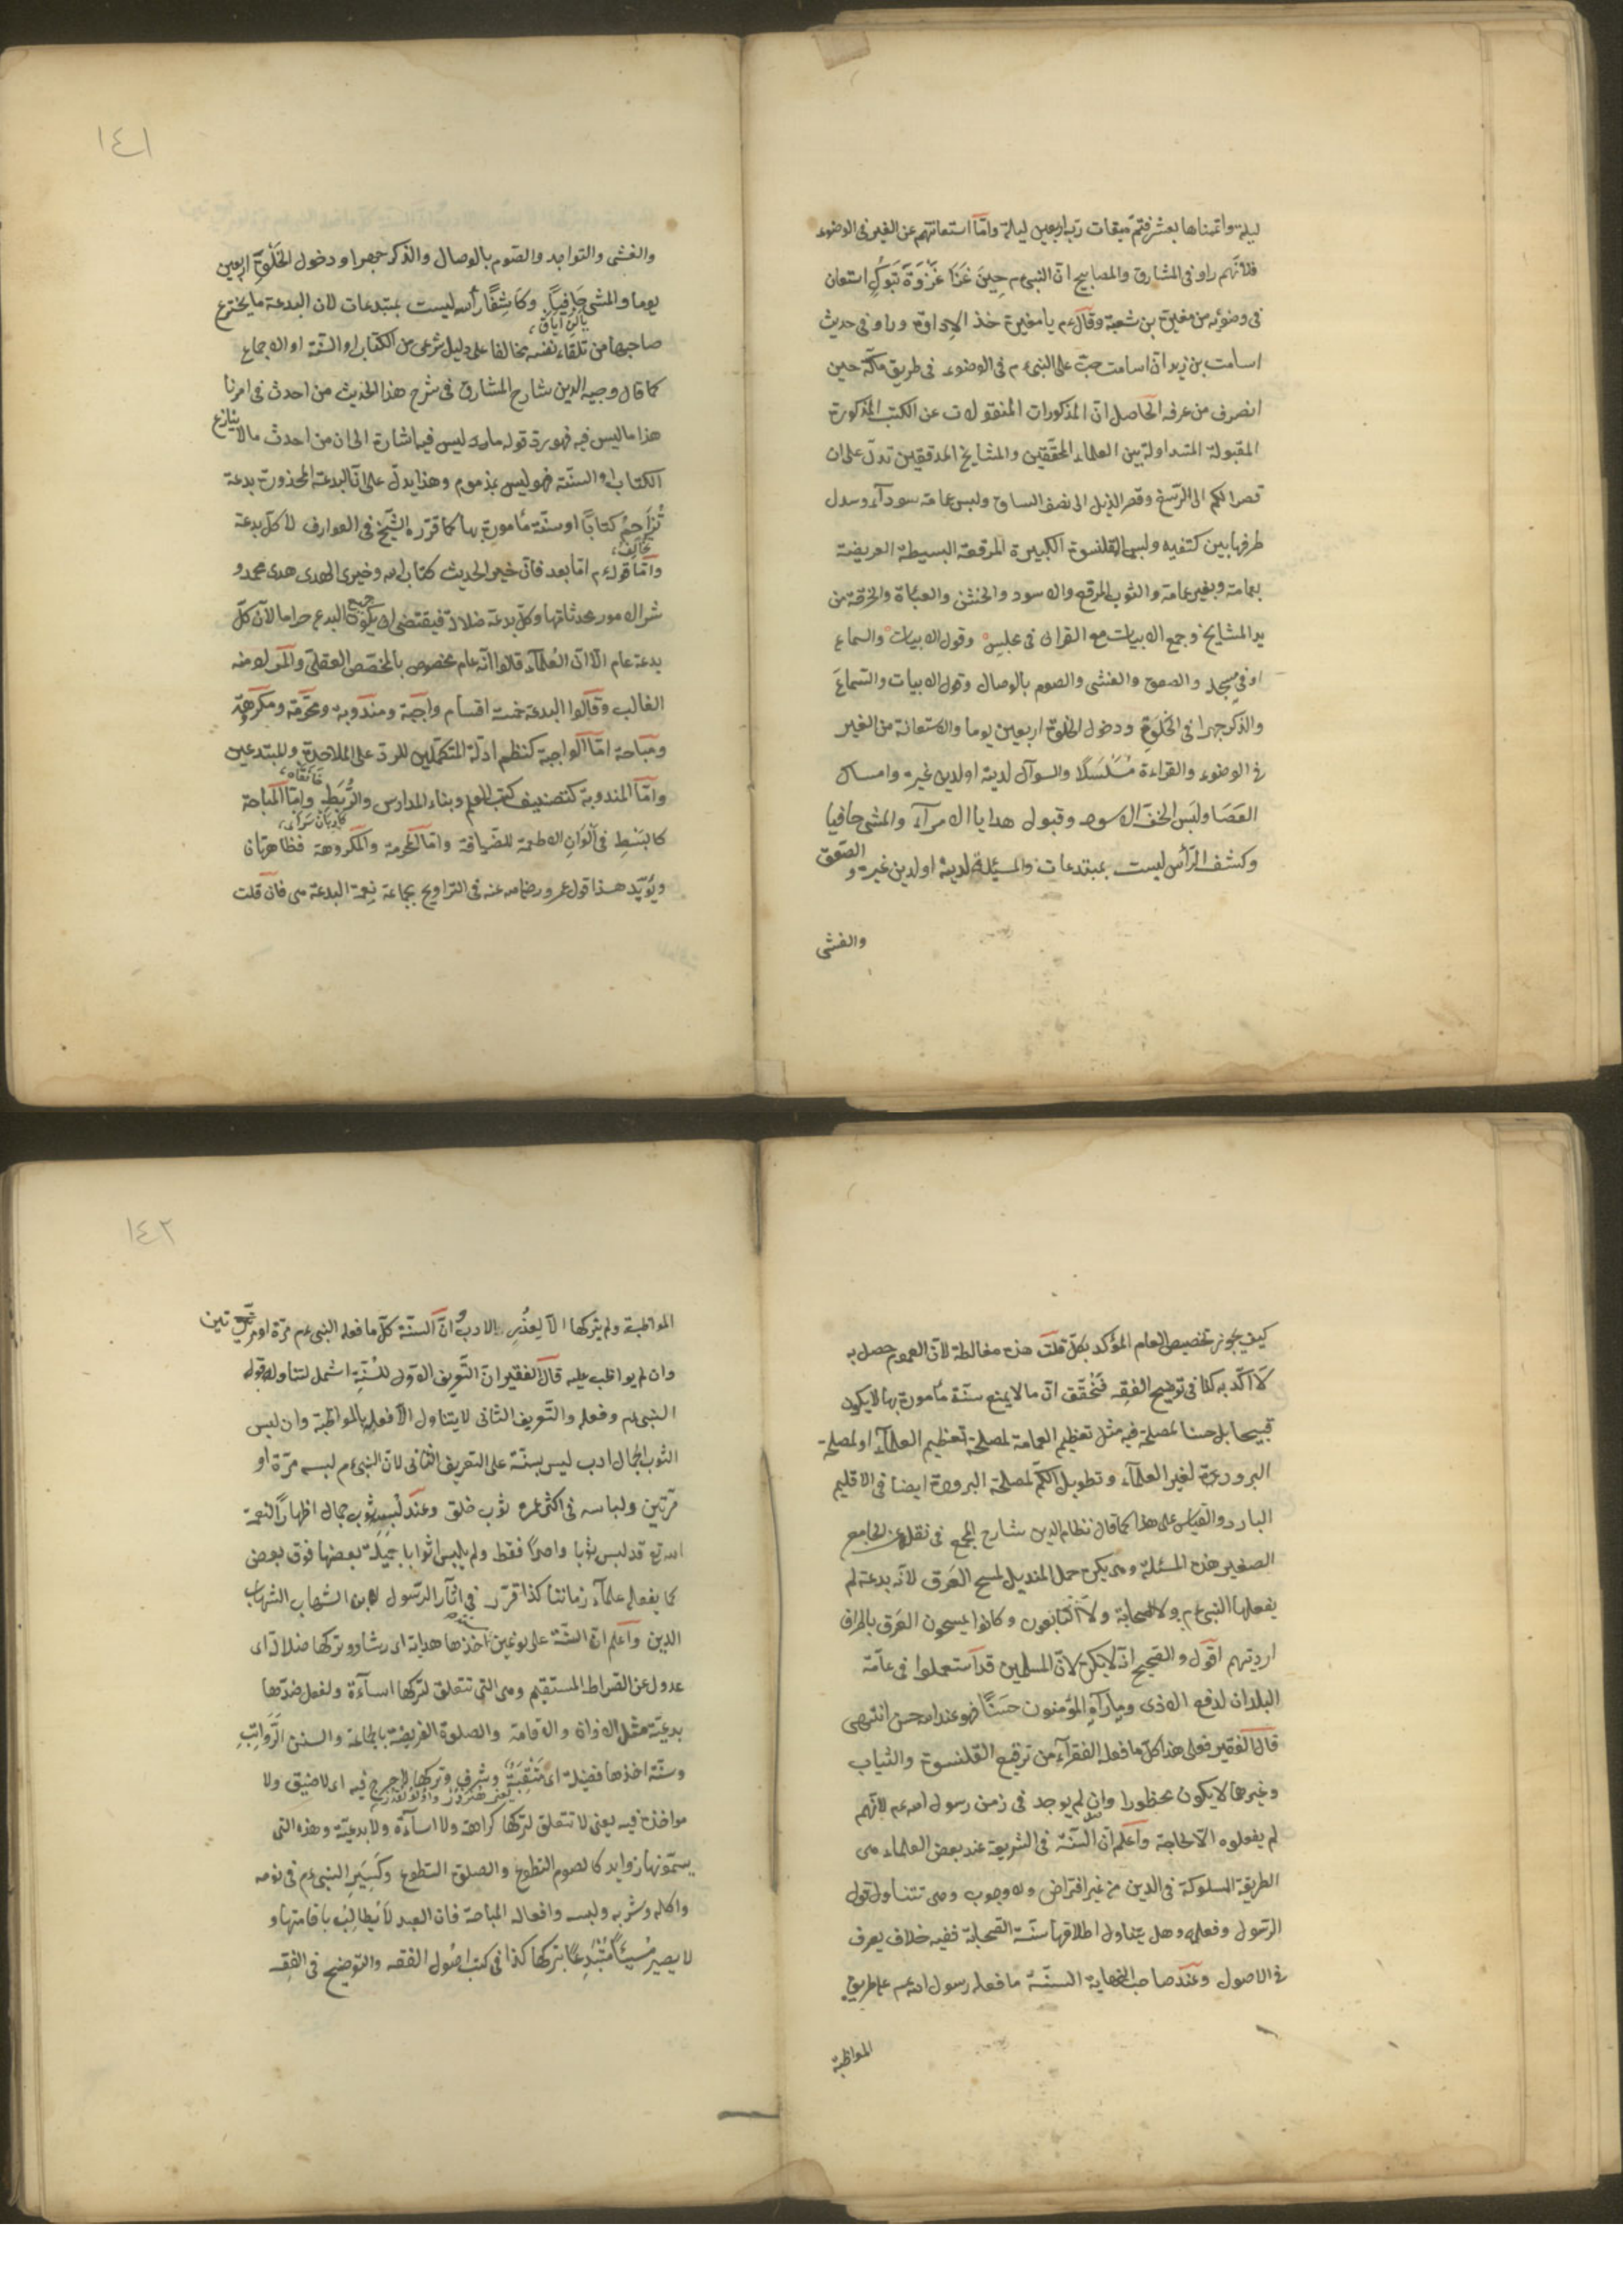 ليلة واتممناها بعشر فتم ميقات ربه اربعين ليلة واما استعانتهم عن الغير فى الوضوء
فلانهم راو فى المشارق والمصابيح ان النبى م حِينَ غَزَا غَزْوَةَ تَبُوكِ استعان
فى وضوئه من مغيرة بن شعبة وقال م يا مغيرة خذ الاداوة وراو فى حديث
اسامة بن زيد ان اسامة صب على النبى م فى الوضوء فى طريق مكة حين
انصرف من عرفه الحاصل ان المذكورات المنقولات عن الكتب المذكورة
المقبولة المتداولة بين العلماء المحققين والمشايخ المدققين تدل على ان
قصر الكم الى الرسغ وقصر الذيل الى نصف الساق ولبس عمامة سوداء وسدل
طرفها بين كتفيه ولبس القلنسوة الكبيرة المرقعة البسيطة العريضة
بعمامة وبغير عمامة والثوب المرقع والاسود والخشن والعباة والخرقة من
يد المشايخ وجمع الابيات مع القران فى مجلس وقول الابيات والسماع
او فى مسجد والصعق والغشى والصوم بالوصال وقول الابيات والسماع
والذكر جهرا فى الخلوة ودخول الخلوة اربعين يوما والاستعانة من الغير
فى الوضوء والقراءة مُسَلْسَلًا والسوآل لدينه او لدين غيره وامساك
العَصَا ولبس الخف الاسود وقبول هدايا الامرآء والمشى حافيا
وكشف الرأس ليست بمبتدعات والمسئلة لدينه او لدين غيره والصعق
والغشى
١٤١
والغشى والتواجد والصوم بالوصال والذكر جهرا ودخول الخَلْوَةِ اربعين
يوما والمشى حَافِيًا وكَاشِفًا رأسه ليست بمبتدعات لان البدعة ما يخترع
صاحبها من تلقاء نفسه مخالفا على دليل شرعى من الكتاب او السنة او الاجماع
كما قال وجيه الدين شارح المشارق فى شرح هذا الحديث من احدث فى امرنا
هذا ما ليس فيه فهو رد قوله ما ليس فيه اشارة الى ان من احدث ما لا ينازع
الكتاب او السنة فهو ليس بمذموم وهذا يدل على ان البدعة المحذورة بدعة
تُزَاحِمُ كتابًا او سنة مأمورة بها كما قرره الشيخ فى العوارف لا كل بدعة
تخالف
واما قوله م اما بعد فان خير الحديث كتاب الله وخير الهدى هدى محمد و
شر الامور محدثاتها وكل بدعة ضلالة فيقتضى ان يكون جميع البدع حراما لان كل
بدعة عام الا ان العلمآء قالوا انه عام مخصوص بالمخصص العقلى والمراد منه
الغالب وقالوا البدعة خمسة اقسام واجبة ومندوبة ومحرمة ومكروهة
ومباحة اما الواجبة كنظم ادلة المتكلمين للرد على الملاحدة والمبتدعين
خانقاه
واما المندوبة كتصنيف كتب العلم وبناء المدارس والرُّبَطِ واما المباحة
كاربان سراى
كالبَسْطِ فى اَلْوَانِ الاطعمة للضيافة واما المحرمة والمكروهة فظاهرتان
ويؤيد هذا قول عمر رضى الله عنه فى التراويح بجماعة نِعْمَ البدعة هى فان قلت
كيف يجوز تخصيص العام المؤكد بكل قلت هذه مغالطة لان العموم حصل به
لا اكد به كذا فى توضيح الفقه فَتَحَقَّقَ ان ما لا يمنع سنة مأمورة بها لا يكون
قبيحا بل حسنا لمصلحة فيه مثل تعظيم العمامة لمصلحة تعظيم العلمآء او لمصلحة
البرودة لغير العلمآء وتطويل الكم لمصلحة البرودة ايضا فى الاقليم
البارد والقياس على هذا كما قال نظام الدين شارح المجمع فى نقله عن الجامع
الصغير هذه المسئلة وهى يكره حمل المنديل لمسح العَرق لانه بدعة لم
يفعلها النبى م ولا الصحابة ولا التابعون وكانوا يمسحون العَرق باطراف
ارديتهم اقول والصحيح انه لا يكره لان المسلمين قد استعملوا فى عامة
البلدان لدفع الاذى وما رآه المؤمنون حَسَنًا فهو عند الله حسن انتهى
قال الفقير فعلى هذا كل ما فعله الفقرآء من ترقيع القلنسوة والثياب
وغيرها لا يكون محظورا وان لم يوجد فى زمن رسول الله عم لانهم
لم يفعلوه الا لحاجة واعلم ان السنة فى الشريعة عند بعض العلماء هى
الطريقة المسلوكة فى الدين من غير افتراض ولا وجوب وهى تتناول قول
الرسول وفعله وهل يتناول اطلاقها سنة الصحابة ففيه خلاف يعرف
فى الاصول وعند صاحب النهاية السنة ما فعله رسول الله عم على طريق
المواظبة
١٤٢
المواظبة ولم يتركها الا لِعُذْرٍ والادب ان السنة كل ما فعله النبى عم مرة او مرتين
وان لم يواظب عليه قال الفقير ان التعريف الاول للسُّنَّةِ اشمل لتناوله قول
النبى م وفعله والتعريف الثانى لا يتناول الا فعله بالمواظبة وان لبس
الثوب الجمال ادب ليس بسنة على التعريف الثانى لان النبى م لبسه مرة او
مرتين ولباسه فى اكثر عمره ثوب خلق وعند لبسه ثوب جمال اظهارًا لنعمة
الله تع قد لبس ثوبا واحدًا فقط ولم يلبس اثوابا جميلة بعضها فوق بعض
كما يفعله علمآء زماننا كذا قرر فى اثآر الرسول لابن الشهاب الشهاب
الدين واعلم ان السنة على نوعين اخذها هداية اى رشاد وتركها ضلالة اى
عدول عن الصراط المستقيم وهى التى تتعلق لتركها اسآءة ولفعل ضدها
بدعية مثل الاذان والاقامة والصلوة الفريضة بالجماعة والسنن الرَّوَاتِبِ
وسنة اخذها فضيلة اى مَنْقِبَةٌ وشرف وتركها لا حرج فيه اى لا ضيق ولا
مواخذة فيه يعنى لا تتعلق لتركها كراهة ولا اسآءة ولا بدعية وهذه التى
يسمونها زوايد كالصوم التطوع والصلوة التطوع وكَسِيَرِ النبى م فى نومه
واكله وشربه ولبسه وافعاله المباحة فان العبد لا يُطالَبُ باقامتها و
لا يصير مُسِيئًا مُبْتَدِعًا بتركها كذا فى كتب اصول الفقه والتوضيح فى الفقه